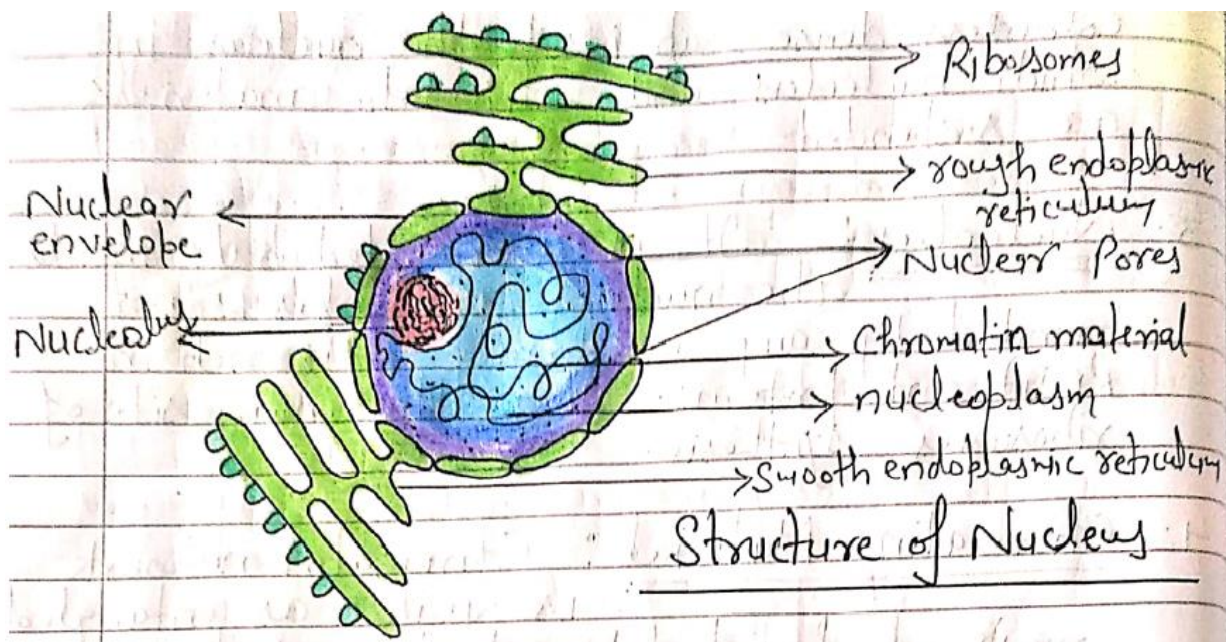 Ribosomes
rough endoplasmic
reticulum
Nuclear
envelope
Nuclear Pores
Nucleolus
Chromatin material
nucleoplasm
Smooth endoplasmic reticulum
Structure of Nucleus